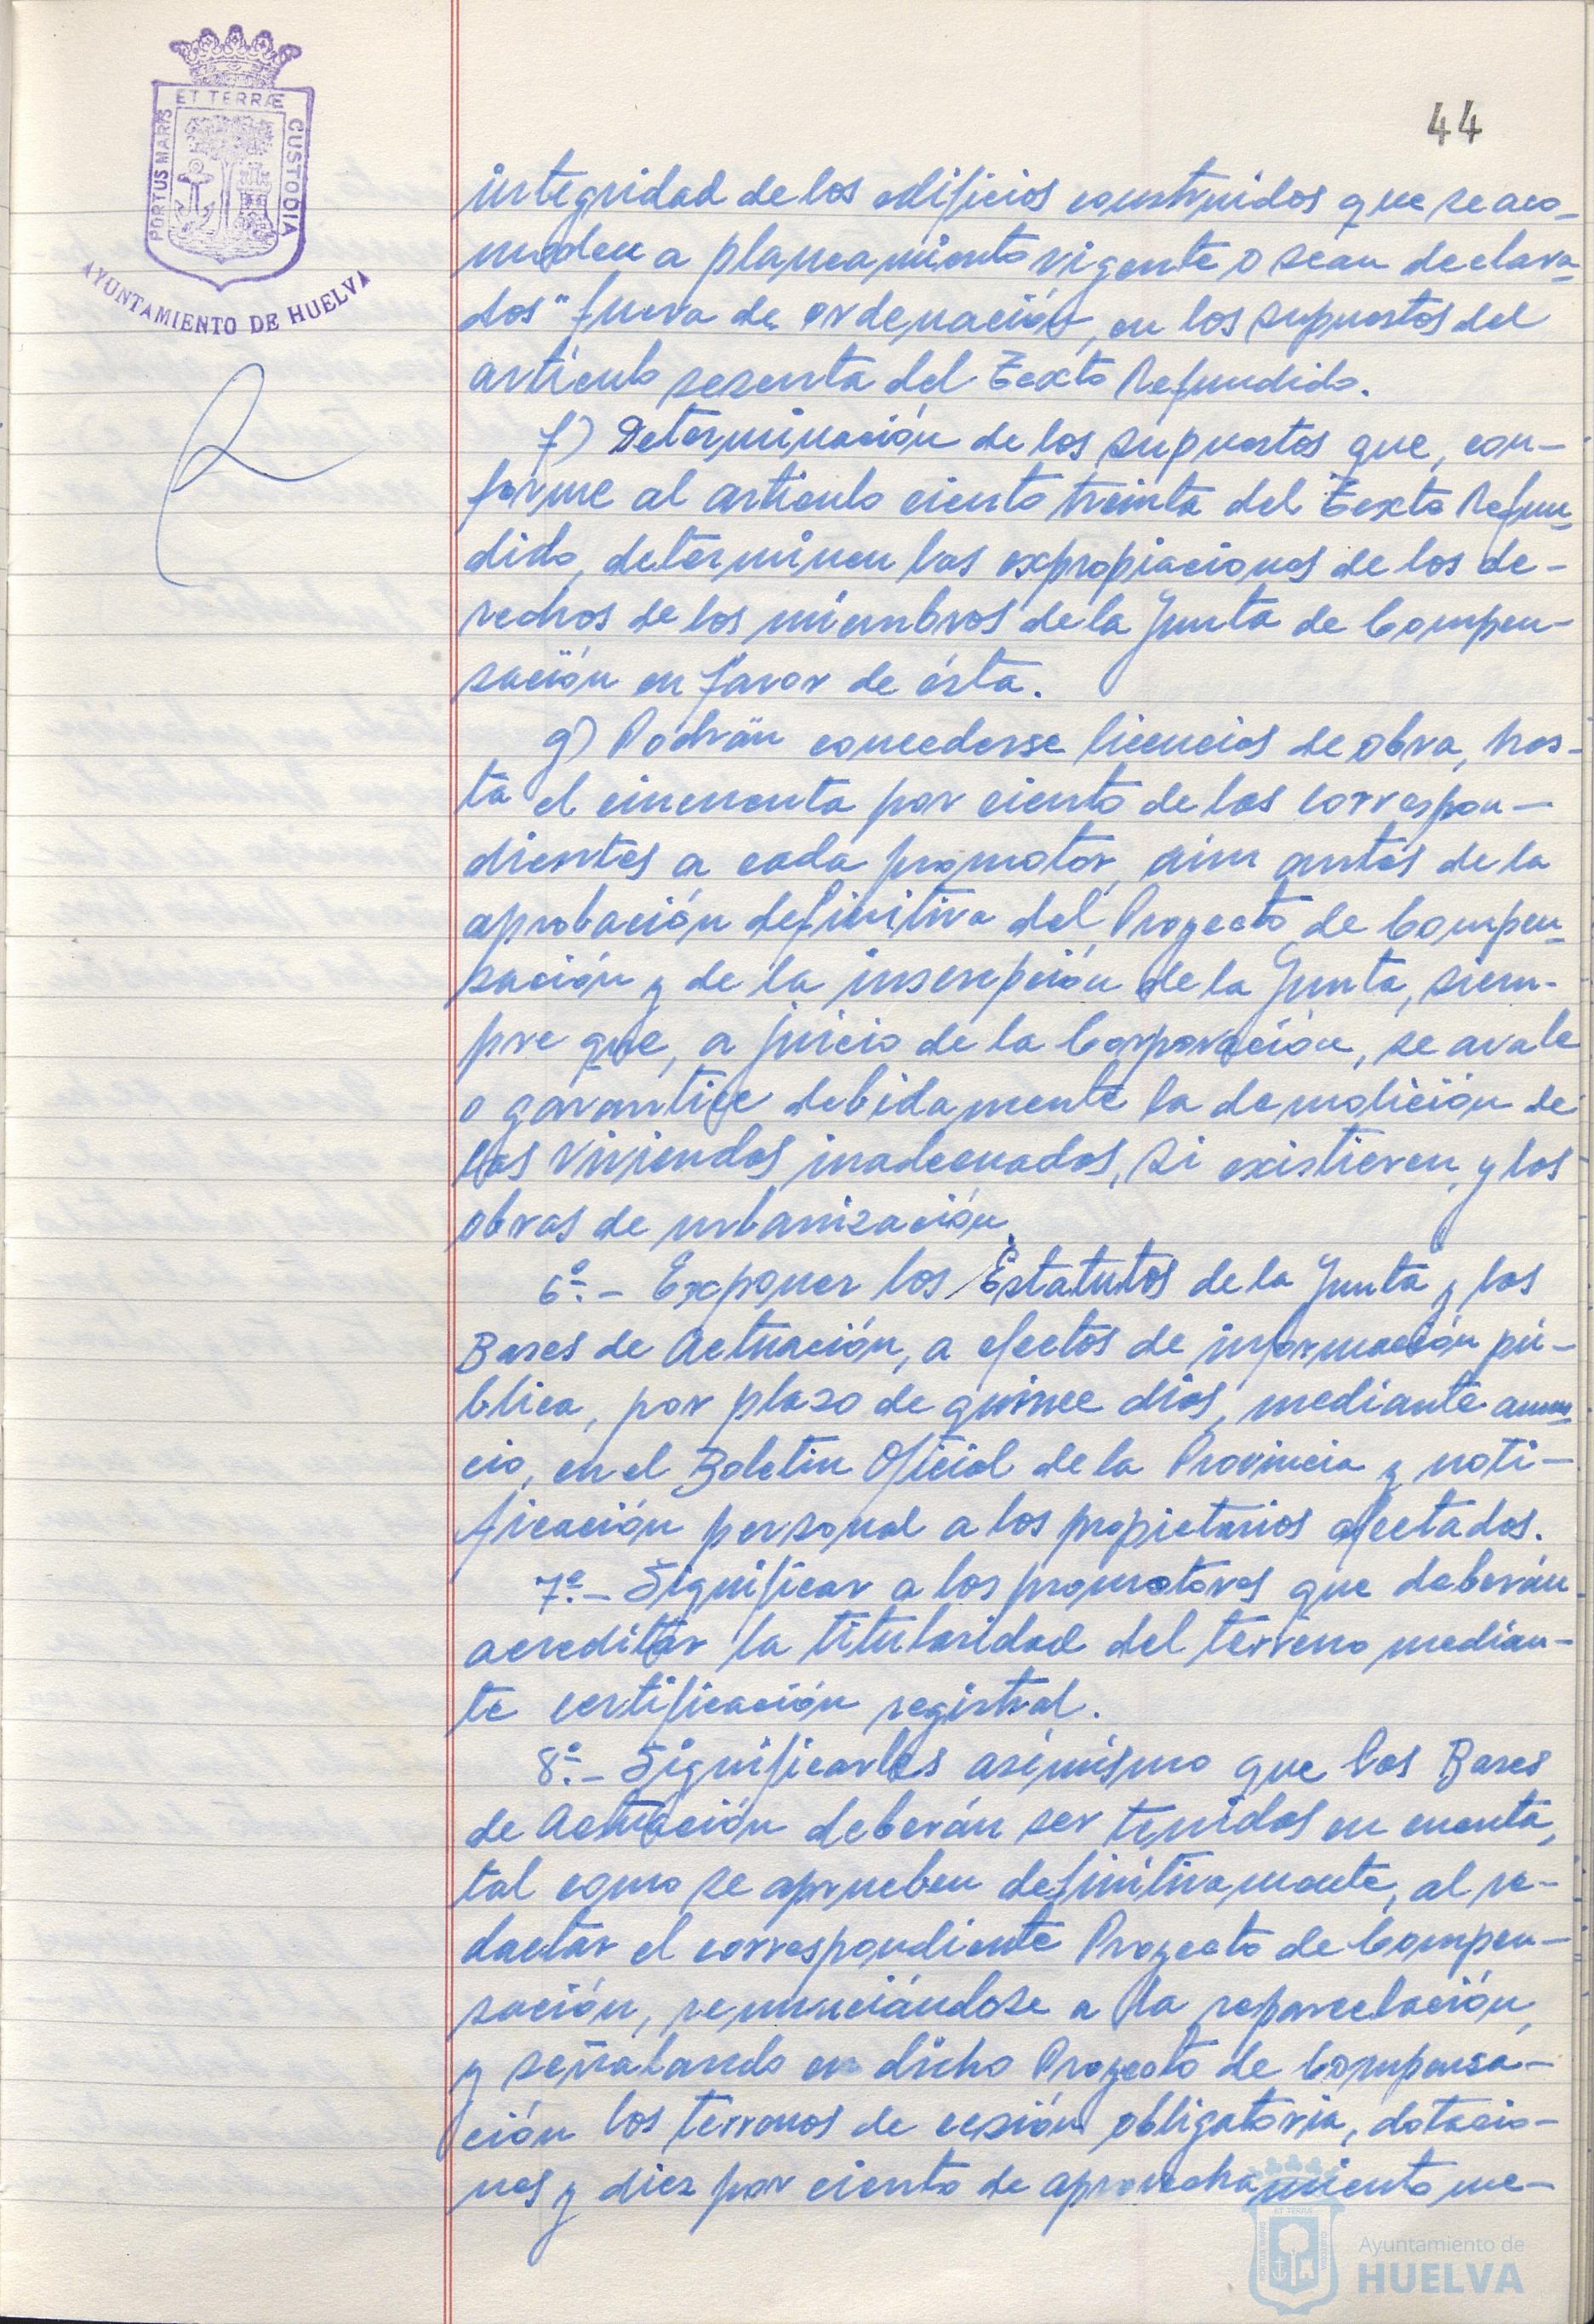 ET TERRÆ
PORTUS MARIS
CUSTODIA
AYUNTAMIENTO DE HUELVA
44
integridad de los edificios construidos que se aco-
moden a planeamiento vigente o sean declara-
dos "fuera de ordenación, en los supuestos del
artículo sesenta del Texto Refundido.
f) Determinación de los supuestos que, con-
forme al artículo ciento treinta del Texto Refun-
dido, determinen las expropiaciones de los de-
rechos de los miembros de la Junta de Compen-
sación en favor de ésta.
g) Podrán concederse licencias de obra, has-
ta el cincuenta por ciento de las correspon-
dientes a cada promotor, aún antes de la
aprobación definitiva del Proyecto de Compen-
sación y de la inscripción de la Junta, siem-
pre que, a juicio de la Corporación, se avale
o garantice debidamente la demolición de
las viviendas inadecuadas, si existieren, y las
obras de urbanización.
6º.- Exponer los Estatutos de la Junta y las
Bases de Actuación, a efectos de información pú-
blica, por plazo de quince días, mediante anun-
cio, en el Boletín Oficial de la Provincia y noti-
ficación personal a los propietarios afectados.
7º.- Significar a los promotores que deberán
acreditar la titularidad del terreno median-
te certificación registral.
8º.- Significarles asímismo que las Bases
de Actuación deberán ser tenidas en cuenta,
tal como se aprueben definitivamente, al re-
dactar el correspondiente Proyecto de Compen-
sación, renunciándose a la reparcelación,
y señalando en dicho Proyecto de Compensa-
ción los terrenos de cesión obligatoria, dotacio-
nes y diez por ciento de aprovechamiento me-
Ayuntamiento de
HUELVA